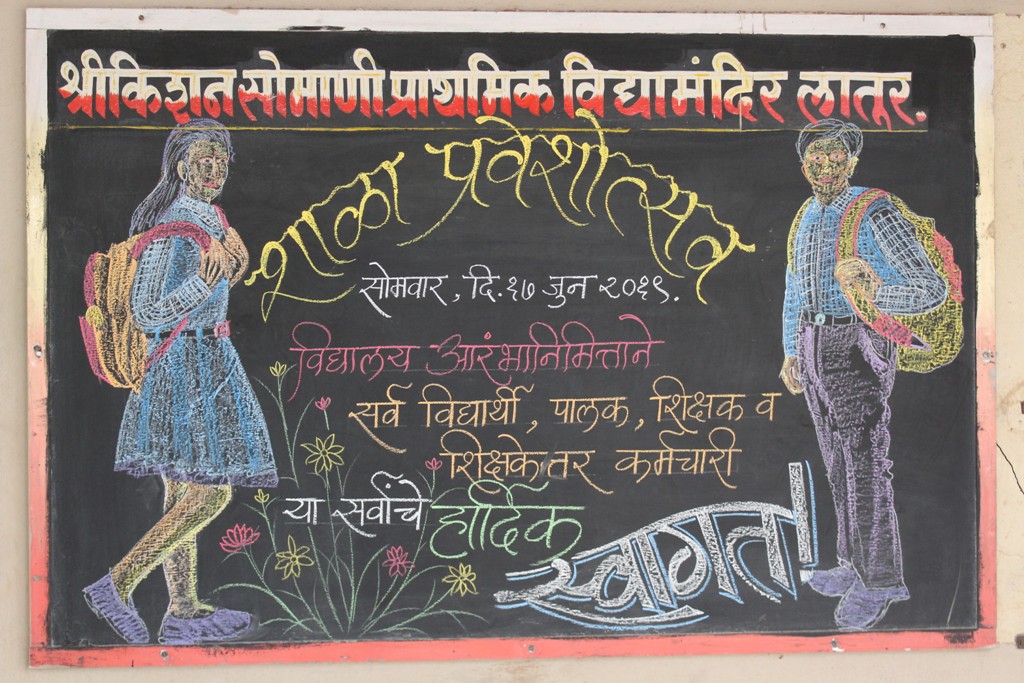 श्रीकिशन सोमाणी प्राथमिक विद्यामंदिर लातूर.
शाळा प्रवेशोत्सव
सोमवार, दि. १७ जुन २०१९.
विद्यालय आरंभानिमित्ताने
सर्व विद्यार्थी, पालक, शिक्षक व
शिक्षकेतर कर्मचारी
या सर्वांचे हार्दिक
स्वागत!